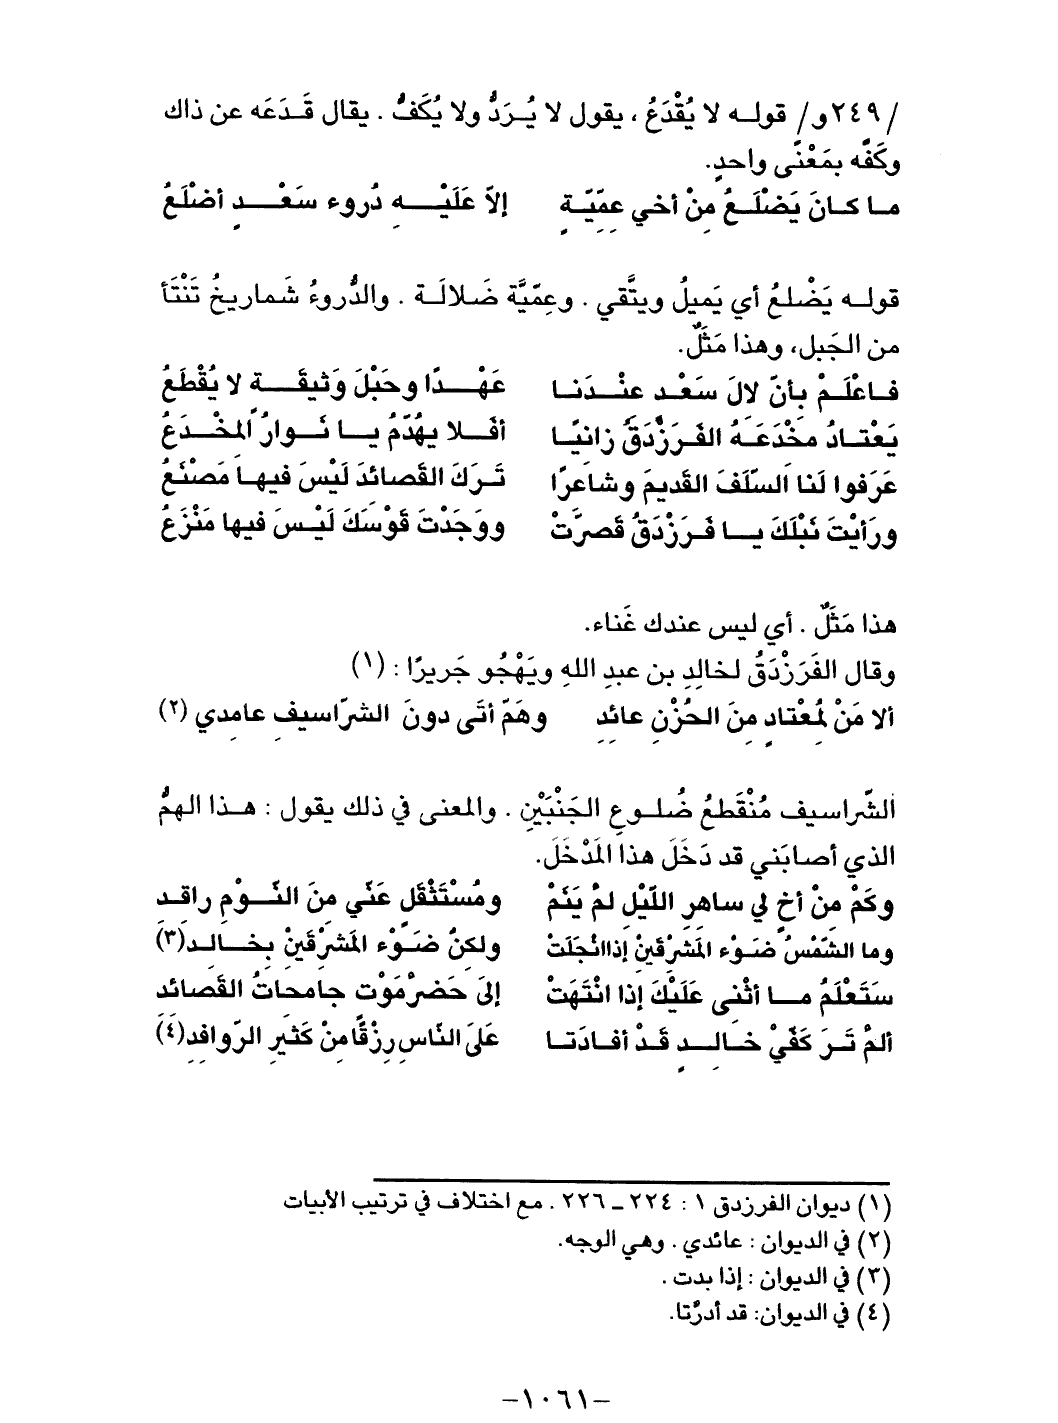 /٢٤٩و/ قوله لا يُقْدَعُ ، يقول لا يُرَدُّ ولا يُكَفُّ . يقال قَدَعَه عن ذاك
وكَفَّه بمَعْنًى واحدٍ.
ما كانَ يَضْلَعُ مِنْ أخي عِمِّيّةٍ إلاّ عَلَيْهِ دُروء سَعْدٍ أضْلَعُ
قوله يَضْلعُ أي يَميلُ ويتَّقي . وعِمّيَّة ضَلالَة . والدُّروءُ شَماريخُ تَنْتَأ
من الجَبل، وهذا مَثَلٌ.
فاعْلَمْ بأنّ لالَ سَعْدٍ عنْدَنا عَهْدًا وحَبْلَ وَثيقَةٍ لا يُقْطَعُ
يَعْتادُ مخْدَعَهُ الفَرَزْدَقُ زانيًا أفَلا يهُدّمُ يا نَوارُ المخْدَعُ
عَرَفوا لَنا السّلَفَ القَديمَ وشاعرًا تَرَكَ القَصائدَ لَيْسَ فيها مَصْنَعُ
ورَأيْتَ نَبْلَكَ يا فَرَزْدَقُ قَصرَّتْ ووَجَدْتَ قَوْسَكَ لَيْسَ فيها مَنْزَعُ
هذا مَثَلٌ . أي ليس عندك غَناء.
وقال الفَرَزْدَقُ لخالِدِ بن عبدِ اللهِ ويَهْجُو جَريرًا : (١)
ألا مَنْ لمُعْتادٍ منَ الحُزْنِ عائدِ وهَمّ أتَى دونَ الشرّاسيفِ عامدي (٢)
الشّراسيف مُنْقَطعُ ضُلوعِ الجَنْبَيْنِ . والمعنى في ذلك يقول : هذا الهمُّ
الذي أصابَني قد دَخَلَ هذا المَدْخَلَ.
وكَمْ منْ أخٍ لي ساهرِ اللّيْلِ لمْ يَنَمْ ومُسْتَثْقَلٍ عَنّي منَ النّوْمِ راقدِ
وما الشّمْسُ ضَوْء المَشرْقَينْ إذا انْجَلَتْ ولكنّ ضَوْء المَشرْقَينْ بخالد(٣)
سَتَعْلَمُ ما أثْني عَلَيْكَ إذا انْتَهَتْ إلىَ حَضرْمَوْت جامحاتُ القَصائد
ألمْ تَرَ كَفّيْ خالدٍ قَدْ أفادَتا عَلىَ النّاسِ رِزْقًا منْ كَثيرِ الرّوافد(٤)
(١) ديوان الفرزدق ١ : ٢٢٤ ــ ٢٢٦ . مع اختلاف في ترتيب الأبيات
(٢) في الديوان : عائدي . وهي الوجه.
(٣) في الديوان : إذا بدت .
(٤) في الديوان: قد أدرَّتا.
–١٠٦١–